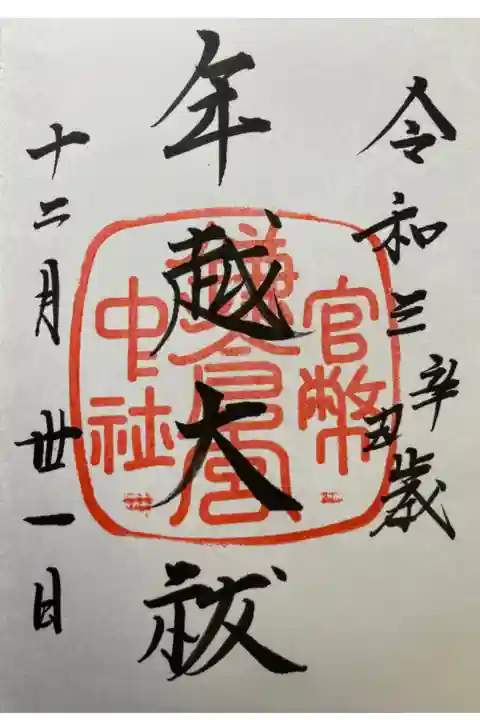 令和三辛丑歳
年越大祓
十二月卅一日
官幣
鎌倉宮
中社